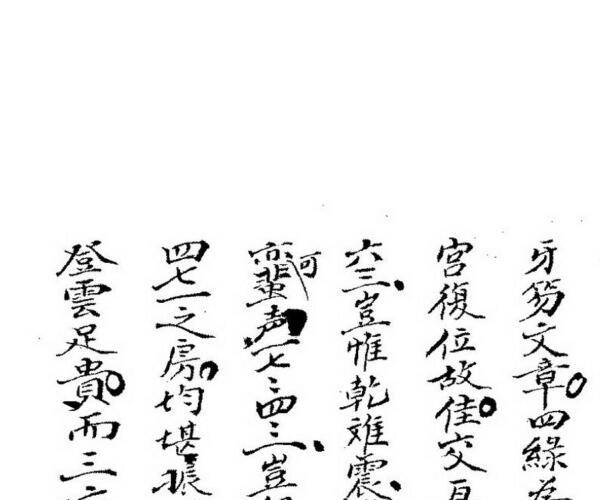 牙笏文章。四綠
宮復位故佳。交
六三、豈惟乾離震、
亦可蜚声一七、四三、豈
四七一之房。均堪振
登雲足貴。而三